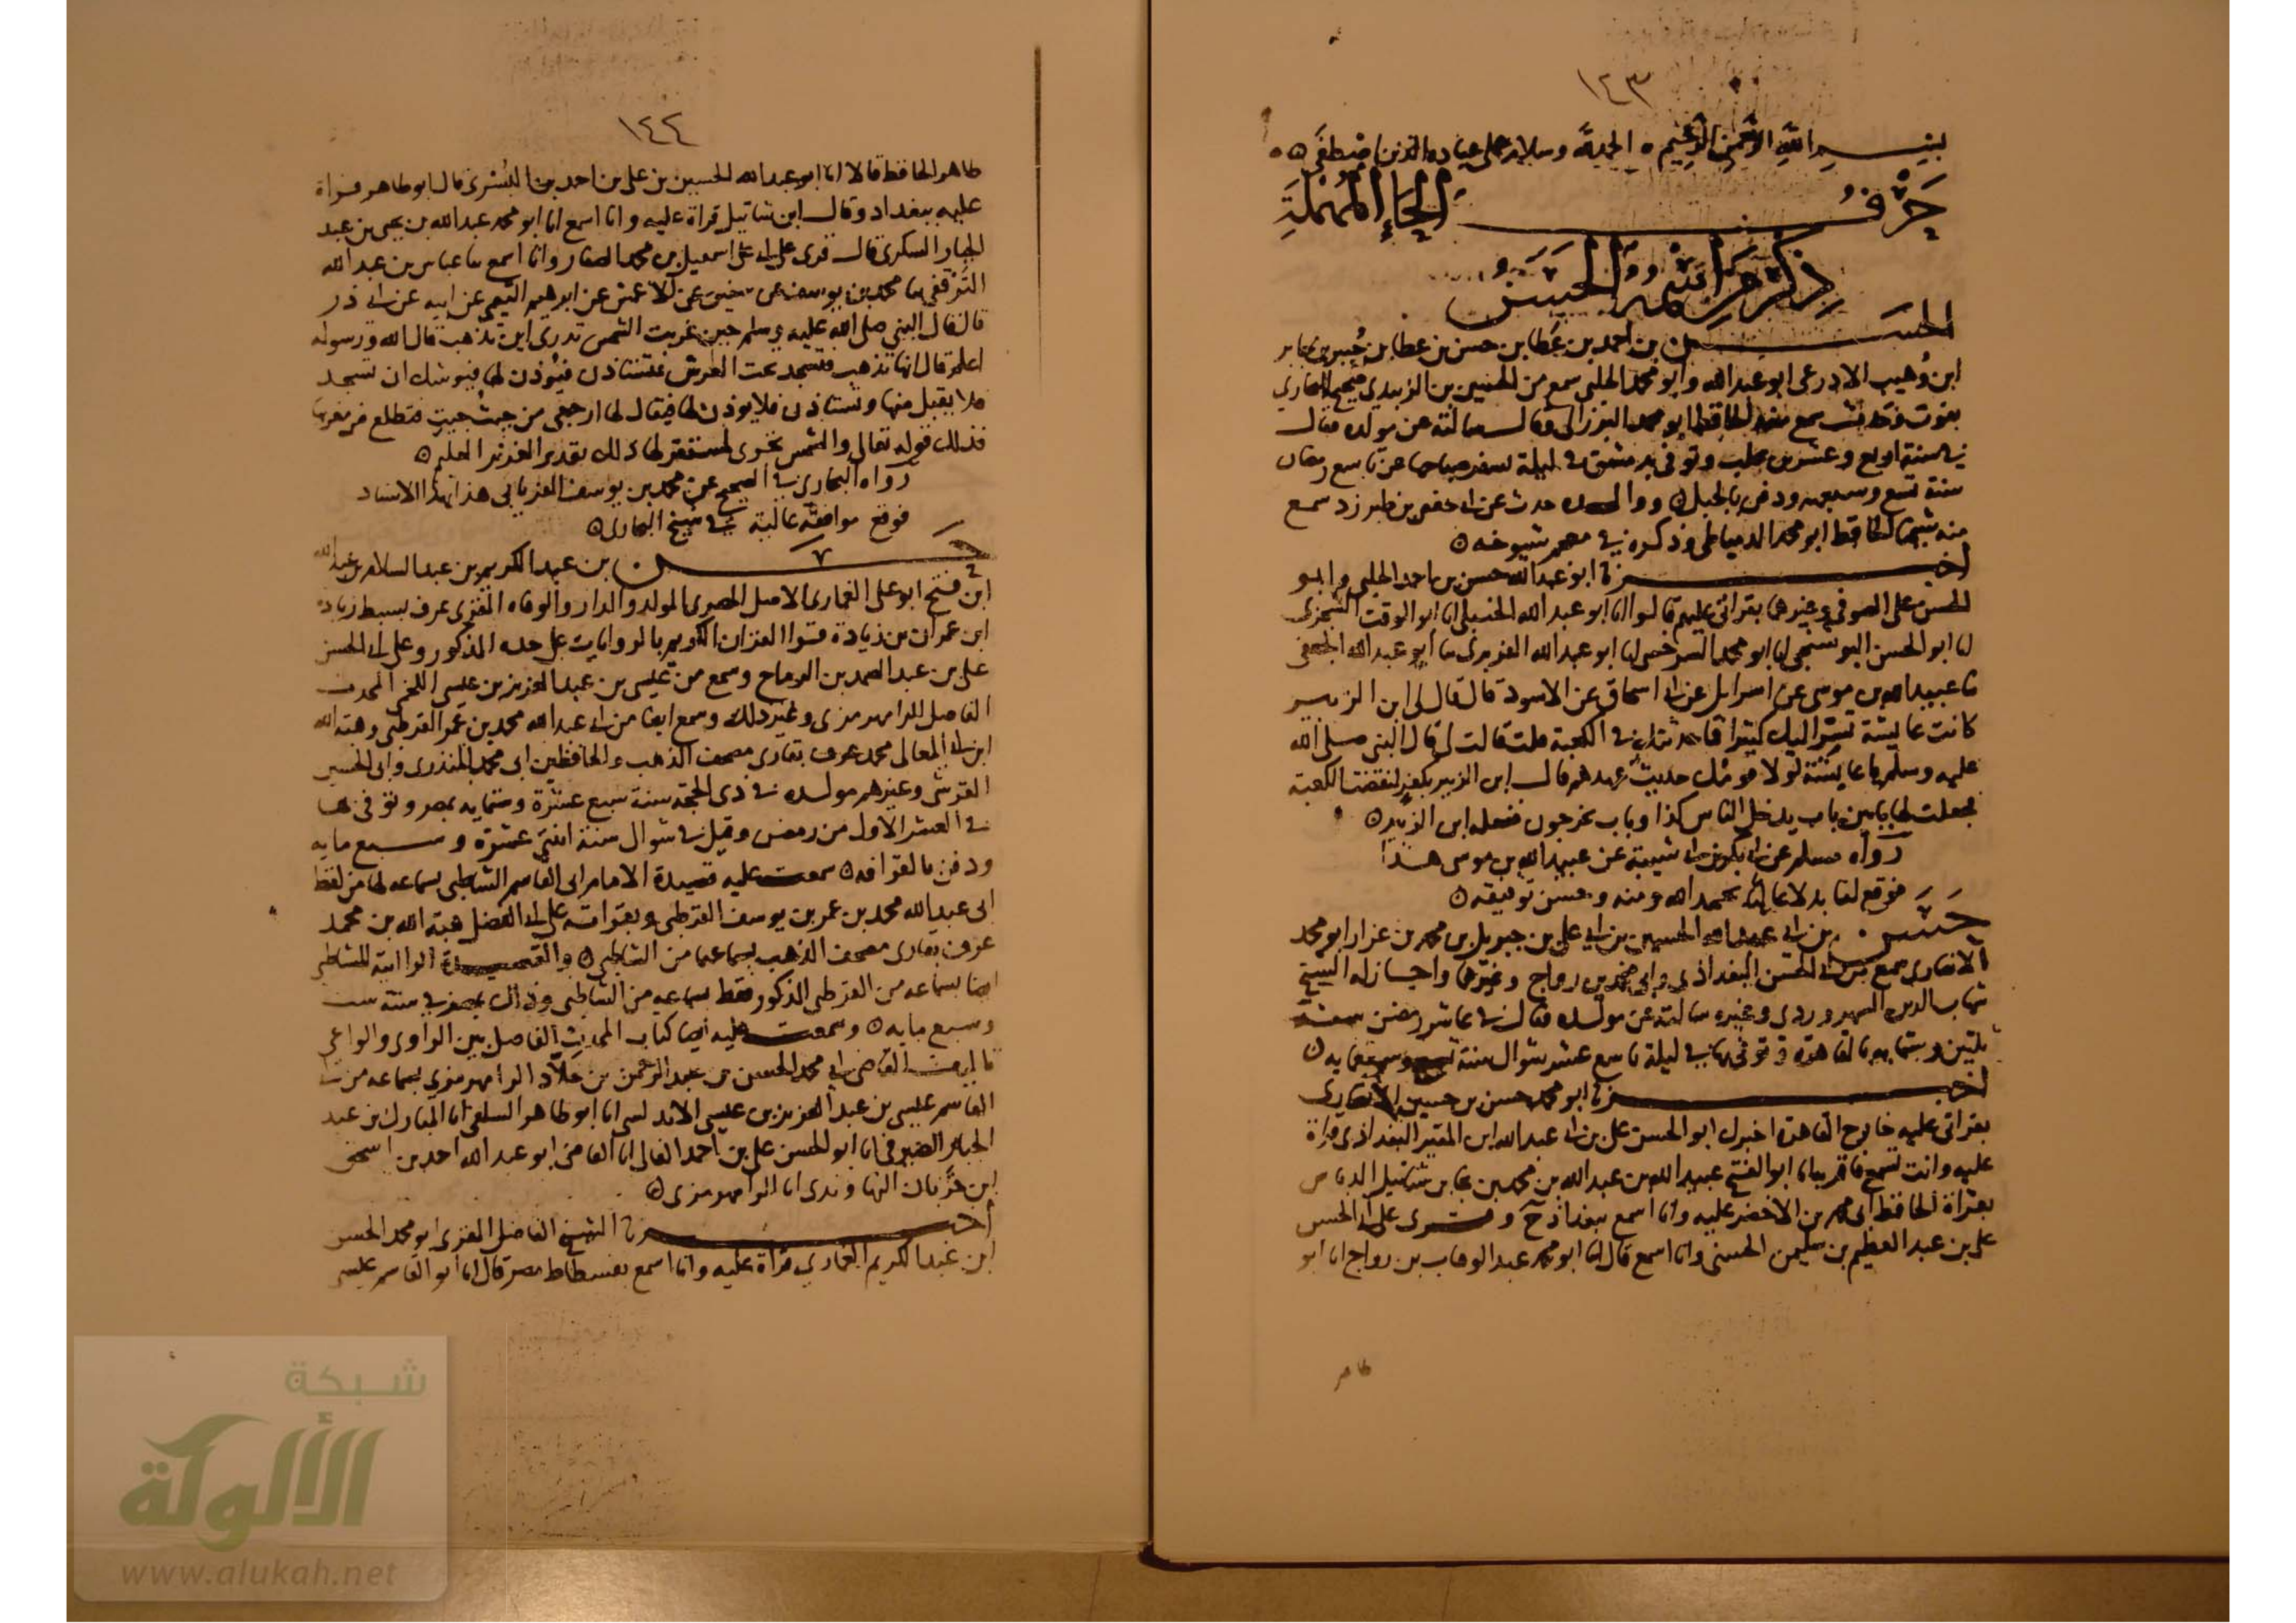 ١٤٣
بسم الله الرحمن الرحيم ٥ الحمد لله وسلام على عباده الذين اصطفى ٥
حرف الحاء المهملة
ذكر من اسمه الحسن
الحسن بن احمد بن عطا بن حسن بن عطا بن جبير بن جابر
ابن وهيب الاذرعى ابو عبد الله وابو محمد الحلبى سمع من الحسين بن الزبيدي صحيح البخاري
بفوت وحدث سمع منه الحافظ ابو محمد البرزالى وقال سالته عن مولده فقال
في سنة اربع وعشرين بحلب وتوفى بدمشق في ليلة يسفر صباحها عن تاسع رمضان
سنة تسع وسبعمه ودفن بالجبل ٥ ووالده حدث عن ابى حفص بن طبرزد سمع
منه شيخنا الحافظ ابو محمد الدمياطى وذكره في معجم شيوخه ٥
اخبرنا ابو عبد الله حسن بن احمد الحلبى وابو
الحسن على الصوفى وغيرهما بقراتى عليهم قالوا انا ابو عبد الله الحنبلى انا ابو الوقت السجزى
انا ابو الحسن البوشنجى انا ابو محمد السرخسى انا ابو عبد الله الفربرى نا ابو عبد الله الجعفى
نا عبيد الله بن موسى عن اسرايل عن ابى اسحاق عن الاسود قال قال لى ابن الزبير
كانت عايشة تسر اليك كثيرا فما حدثتك في الكعبة قلت قالت لى قال النبى صلى الله
عليه وسلم يا عايشة لولا قومك حديث عهدهم قال ابن الزبير بكفر لنقضت الكعبة
فجعلت لها بابين باب يدخل الناس كذا وباب يخرجون ففعله ابن الزبير ٥
رواه مسلم عن ابى بكر بن ابى شيبة عن عبيد الله بن موسى هذا
فوقع لنا بدلا عاليا بحمد الله ومنه وحسن توفيقه ٥
حسن بن ابى عبد الله الحسين بن ابى على بن جبريل بن محمد بن عزاز ابو محمد
الانصارى سمع من ابى الحسن البغداذى وابى محمد بن رواج وغيرهما واجاز له الشيخ
شهاب الدين السهروردى وغيره سالته عن مولده فقال في عاشر رمضن سنة
ثلثين وستمايه بالقاهرة وتوفى بها في ليلة تاسع عشر شوال سنة تسع وسبعمايه ٥
اخبرنا ابو محمد حسن بن حسين الانصارى
بقراتى عليه خارج القاهرة اخبرك ابو الحسن على بن ابى عبد الله ابن المقير البغداذى قراة
عليه وانت تسمع فاقر به انا ابو الفتح عبيد الله بن عبد الله بن محمد بن نجا بن شاتيل الدباس
بقراة الحافظ ابى محمد بن الاخضر عليه وانا اسمع ببغداذ ح وقرى على ابى الحسن
على بن عبد العظيم بن سليمن الحسنى وانا اسمع قال انا ابو محمد عبد الوهاب بن رواج انا ابو
طاهر
١٤٤
طاهر الحافظ قالا انا ابو عبد الله الحسين بن على بن احمد بن البسرى قال ابو طاهر قراة
عليه ببغداد وقال ابن شاتيل قراة عليه وانا اسمع انا ابو محمد عبد الله بن يحيى بن عبد
الجبار السكرى قال قرى على ابى على اسمعيل بن محمد الصفار وانا اسمع نا عباس بن عبد الله
الترقفى نا محمد بن يوسف عن سفين عن الاعمش عن ابرهيم التيمى عن ابيه عن ابى ذر
قال قال النبى صلى الله عليه وسلم حين غربت الشمس تدرى اين تذهب قال الله ورسوله
اعلم قال انها تذهب فتسجد تحت العرش فتستاذن فيؤذن لها فيوشك ان تسجد
فلا يقبل منها وتستاذن فلا يوذن لها فيقال لها ارجعى من حيث جيت فتطلع من مغربها
فذلك قوله تعالى والشمس تجرى لمستقر لها ذلك تقدير العزيز العليم ٥
رواه البخارى في الصحيح عن محمد بن يوسف الفريابى هذا بهذا الاسناد
فوقع موافقة عالية في شيخ البخارى ٥
حسن بن عبد الكريم بن عبد السلام بن عبد الله
ابن فتح ابو على الغمارى الاصل المصرى المولد والدار والوفاه المقرى عرف بسبط زياده
ابن عمران بن زيادة قرا القران الكريم بالروايات على جده المذكور وعلى ابى الحسن
على بن عبد الصمد بن الرماح وسمع من عيسى بن عبد العزيز بن عيسى اللخمى المحدث
الفاصل للرامهرمزى وغير ذلك وسمع ايضا من ابى عبد الله محمد بن عمر القرطبى وهبة الله
ابن ابى المعالى محمد عرف بقارى مصحف الذهب والحافظين ابى محمد المنذرى وابى الحسين
القرشى وغيرهم مولده في ذى الحجة سنة سبع عشرة وستمايه بمصر وتوفى بها
في العشر الاول من رمضن وقيل في شوال سنة اثنتى عشرة وسبع مايه
ودفن بالقرافه ٥ سمعت عليه قصيدة الامام ابى القاسم الشاطبى بسماعه لها من لفظ
ابى عبد الله محمد بن عمر بن يوسف القرطبى وبقراته على ابى الفضل هبة الله بن محمد
عرف بقارى مصحف الذهب بسماعهما من الشاطبى ٥ والقصيدة الرائية للشاطبى
ايضا بسماعه من القرطبى المذكور فقط بسماعه من الشاطبى وذلك بمصر في سنة ست
وسبع مايه ٥ وسمعت عليه ايضا كتاب المحدث الفاصل بين الراوى والواعى
تاليف القاضى ابى محمد الحسن بن عبد الرحمن بن خلاد الرامهرمزى بسماعه من ابى
القاسم عيسى بن عبد العزيز بن عيسى الاندلسى انا ابو طاهر السلفى انا المبارك بن عبد
الجبار الصيرفى انا ابو الحسن على بن احمد الفالى انا القاضى ابو عبد الله احمد بن اسحق
ابن خربان النهاوندى انا الرامهرمزى ٥
اخبرنا الشيخ الفاضل المقرى ابو محمد الحسن
ابن عبد الكريم الغمارى قراة عليه وانا اسمع بفسطاط مصر قال انا ابو القاسم عيسى
شبكة
الألوكة
www.alukah.net